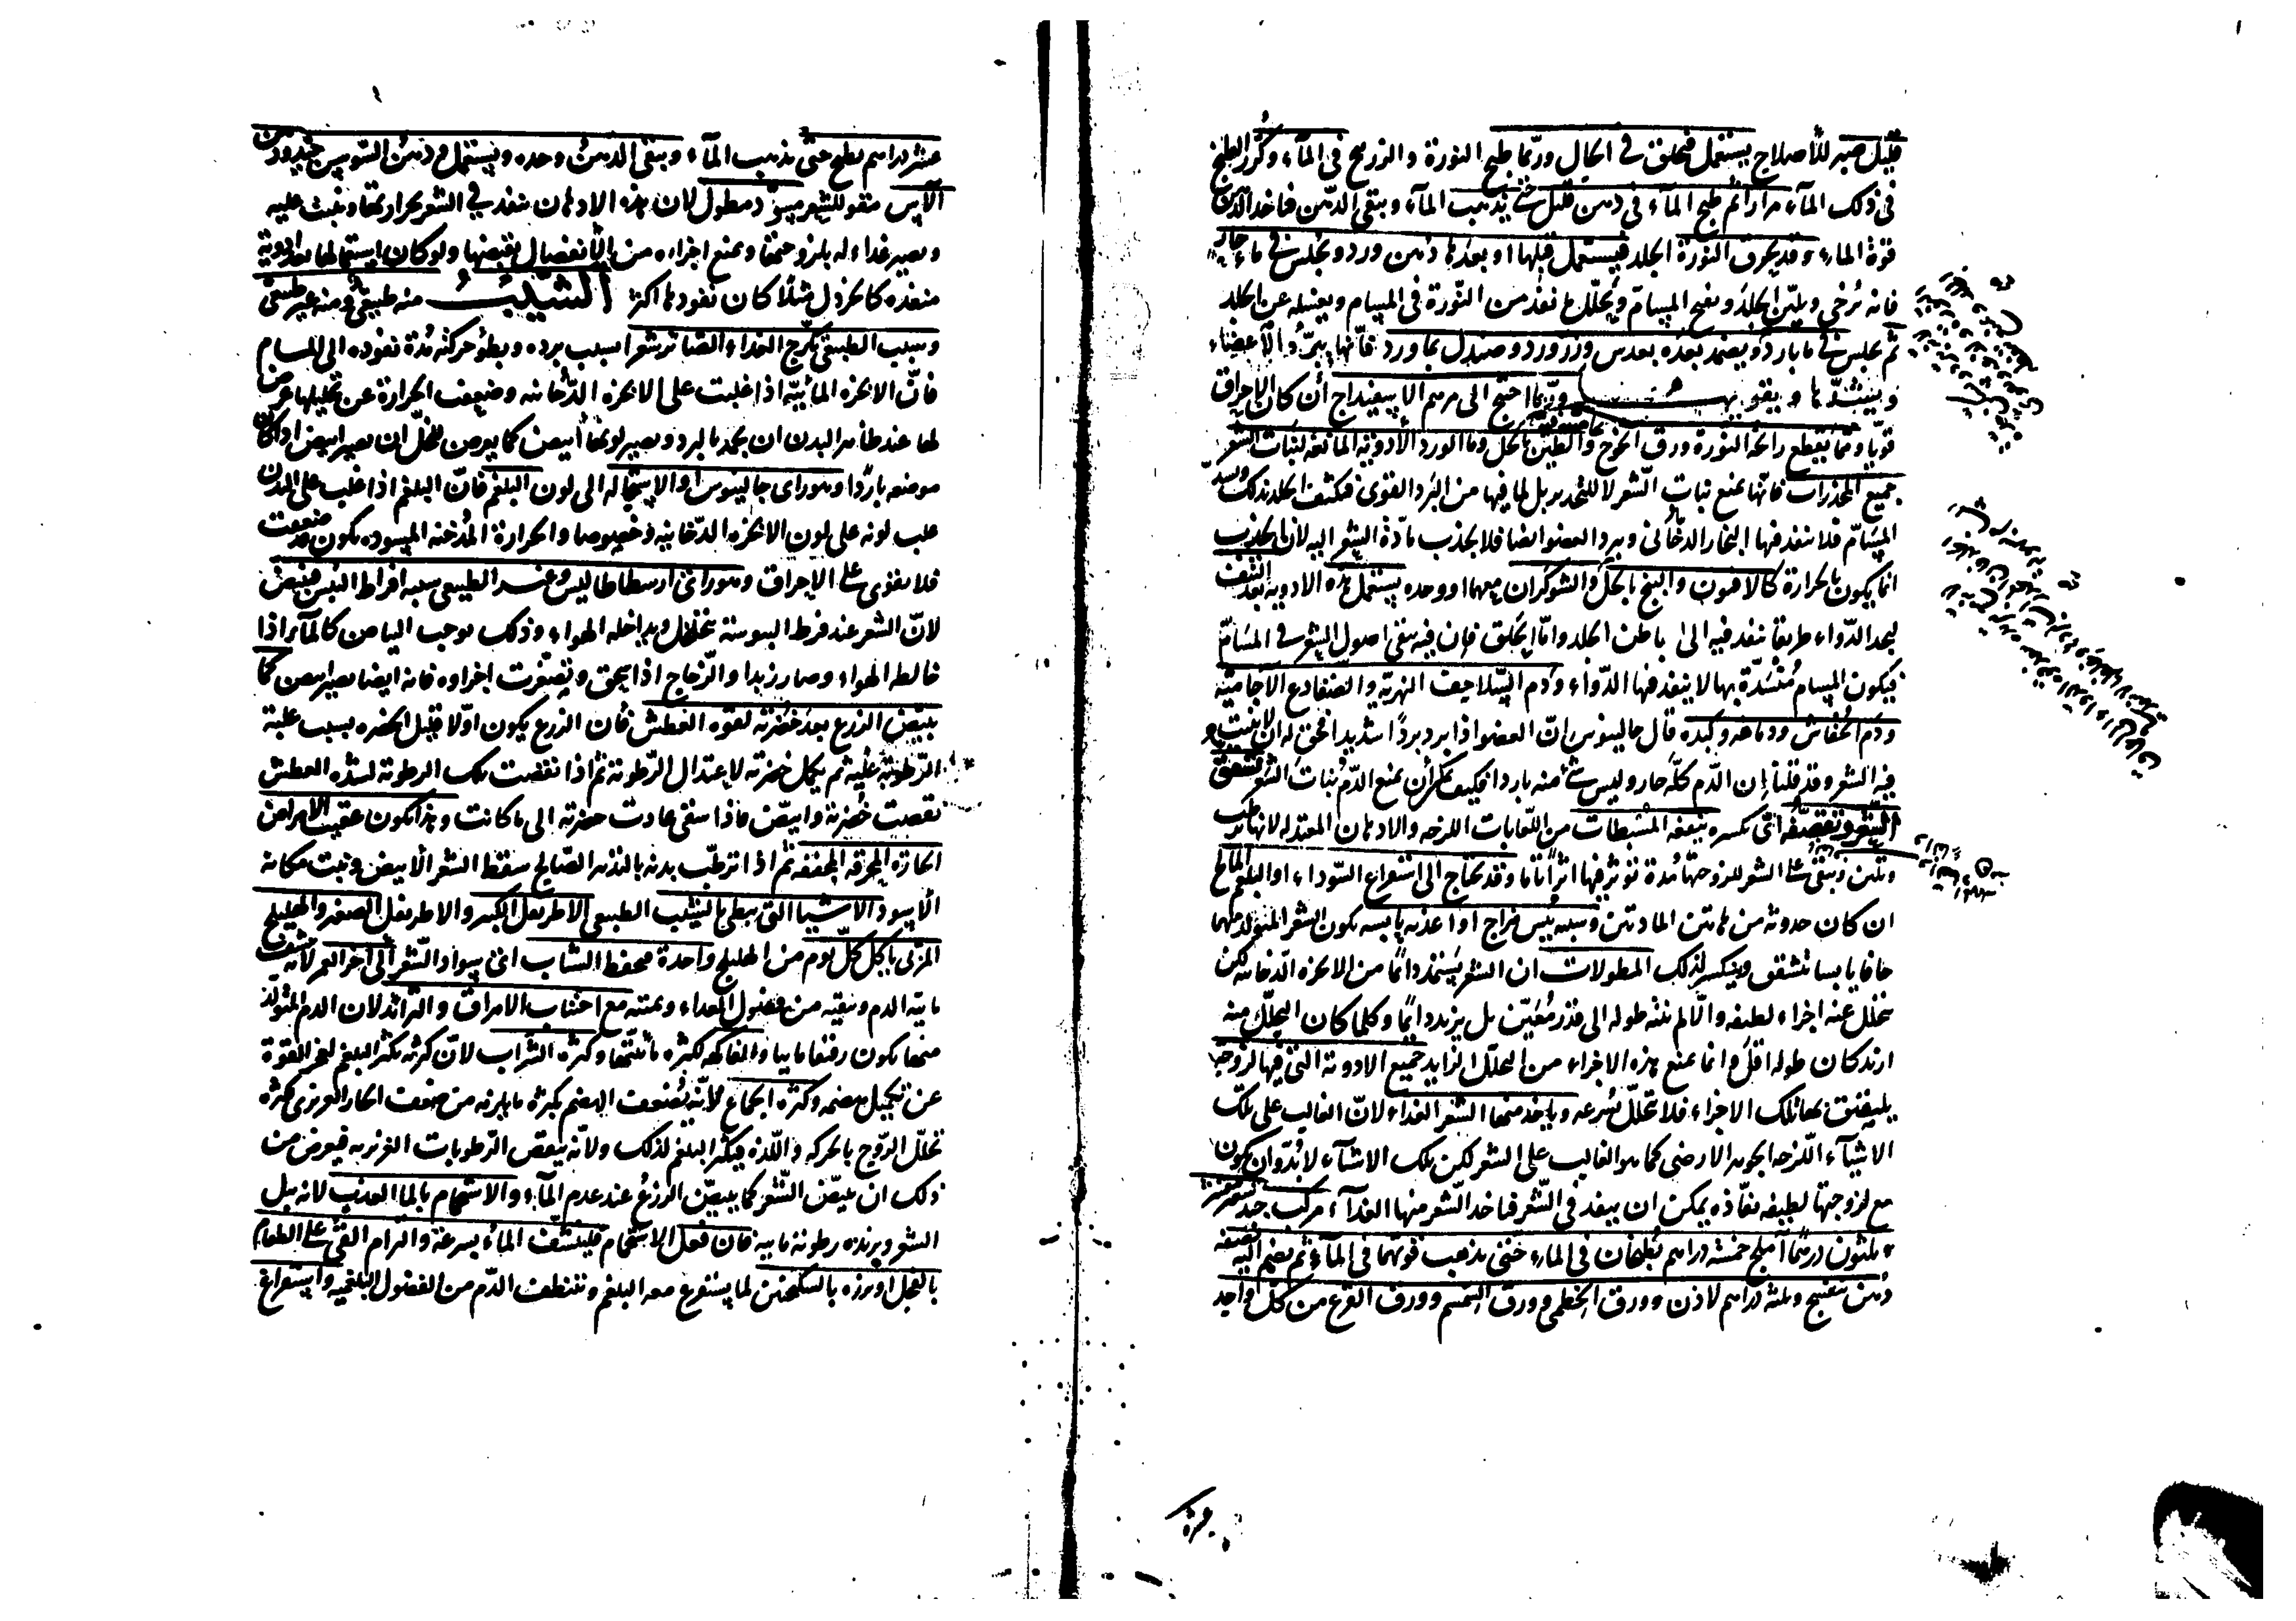 قليل صبر للأصلاح يستعمل فيحلق في الحال وربما طبخ النورة والزرنيخ في الماء وكرر الطبخ
في ذلك الماء مرارا ثم طبخ الماء في دهن قليل حتى يذهب الماء ويبقى الدهن فياخذ الدهن
قوة الماء وقد يحرق النورة الجلد فيستعمل قبلها او بعدها دهن ورد ويجلس في ماء حار
فانه يرخي ويلين الجلد ويفتح المسام ويحلل ما نفذ من النورة في المسام ويغسله عن الجلد
ثم يجلس في ماء بارد ويضمد بعده بعدس وزرورد وصندل بماورد فانها يبرد الاعضاء
ويشدها ويقويها وربما احتيج الى مرهم الاسفيداج ان كان الاحراق
قويا ومما يقطع رائحة النورة ورق الخوخ والطين بالخل وماالورد الأدوية المانعة لنبات الشعر
جميع المخدرات فانها تمنع نبات الشعر لا للتخدير بل لما فيها من البرد القوي فيكثف الجلد بذلك ويسد
المسام فلا ينفذ فيها البخار الدخاني ويبرد العضو ايضا فلا يجذب مادة الشعر اليه لان الجذب
انما يكون بالحرارة كالافيون والبنج بالخل والشوكران معهما او وحده يستعمل هذه الادوية بعد النتف
ليجد الدواء طريقا ينفذ فيه الى باطن الجلد واما الحلق فان فيه يبقى اصول الشعر في المسام
فيكون المسام منسدة بها لا ينفذ فيها الدواء ودم السلاحف النهرية والضفادع الآجامية
ودم الخفاش ودماغه وكبده قال جالينوس ان العضو اذا برد بردا شديدا فحق له ان لا ينبت
فيه الشعر وقد قلنا إن الدم كله حار وليس شئ منه باردا فكيف يمكن أن يمنع الدم نبات الشعر تشقق
الشعر وتقصفه اي تكسره ينفعه المسبطات من اللعابات اللزجة والادهان المعتدلة لانها ترطب
وتلين وتبقى على الشعر للزوجتها مدة تؤثر فيها اثرا تاما وقد يحتاج الى استفراغ السوداء او البلغم المالح
ان كان حدوثه من هاتين المادتين وسببه يبس مزاج او اغذية يابسة يكون الشعر المتولد منهما
جافا يابسا تشقق وينكسر لذلك المطولات ان الشعر يستمد دائما من الابخرة الدخانية لكن
يتحلل عنه اجزاء لطيفة والا لم ينته طوله الى قدر معين بل يزيد دائما وكلما كان التحلل منه
ازيد كان طوله اقل وانما يمنع هذه الاجزاء من التحلل الزايد جميع الادوية التي فيها لزوجة
يلتصق بها تلك الاجزاء فلا تتحلل بسرعة وياخذ منها الشعر الغذاء لان الغالب على تلك
الاشياء اللزجة الجوهر الارضي كما هو الغالب على الشعر لكن تلك الاشياء لا بد وان يكون
مع لزوجتها لطيفة نفاذة يمكن ان ينفذ في الشعر فياخذ الشعر منها الغذاء مركب جيد
ثلثون درهما آملج خمسة دراهم يطبخان في الماء حتى يذهب قوتهما في الماء ثم يضم اليه نصفه
دهن بنفسج وثلثة دراهم لاذن وورق الخطمي وورق السمسم وورق القرع من كل واحد
عشرة دراهم يطبخ حتى يذهب الماء ويبقى الدهن وحده ويستعمل ودهن السوسن جيد ودهن
الآس مقو للشعر مسود مطول لان هذه الادهان ينفذ في الشعر بحرارتها ويثبت عليه
ويصير غذاء له بلزوجتها ويمنع اجزاءه من الانفصال بقبضها ولو كان استعمالها بعد ادوية
منفذة كالخردل مثلا كان نفوذها اكثر الشيب منه طبيعي ومنه غير طبيعي
وسبب الطبيعي تكرج الغذاء الصائر شعرا بسبب برده وبطؤ حركته مدة نفوذه الى المسام
فان الابخرة المائية اذا غلبت على الابخرة الدخانية وضعفت الحرارة عن تحليلها عرض
لها عند ظاهر البدن ان يجمد بالبرد ويصير لونها أبيض كما يعرض للخل ان يصير ابيض اذا كان
موضعه باردا وهو راي جالينوس او الاستحالة الى لون البلغم فان البلغم اذا غلب على البدن
غلب لونه على لون الابخرة الدخانية وخصوصا والحرارة المدخنة المسودة يكون قد ضعفت
فلا يقوى على الاحراق وهو راي ارسطاطاليس وغير الطبيعي سببه افراط اليبس فيبيض
لان الشعر عند فرط اليبوسة يتخلخل ويداخله الهواء وذلك يوجب البياض كالماء اذا
خالطه الهواء وصار زبدا والزجاج اذا سحق وتصغرت اجزاؤه فانه ايضا يصير ابيض كما
يبيض الزرع بعد خضرته لقوة العطش فان الزرع يكون اولا قليل الخضرة بسبب غلبة
الرطوبة عليه ثم يكمل خضرته لاعتدال الرطوبة ثم اذا نقصت تلك الرطوبة لشدة العطش
نقصت خضرته وابيض فاذا سقي عادت خضرته الى ما كانت وهذا يكون عقيب الامراض
الحارة المحرقة المجففة ثم اذا ترطب بدنه بالتدبير الصالح سقط الشعر الأبيض ونبت مكانه
الأسود الاشياء التي يبطي بالشيب الطبيعي الاطريفل الكبير والاطريفل الصغير والهليلج
المربى ياكل كل يوم من الهليلج واحدة فيحفظ الشباب اي سواد الشعر الى آخر العمر لانه ينشف
مائية الدم وينقيه من فضول الغذاء ويمتنه مع اجتناب الامراق والثرائد لان الدم المتولد
منها يكون رقيقا مائيا والفاكهة لكثرة مائيتها وكثرة الشراب لان كثرته يكثر البلغم لعجز القوة
عن تكميل هضمه وكثرة الجماع لانه يضعف الهضم بكثرة ما يلزمه من ضعف الحار الغريزي لكثرة
تحلل الروح بالحركة واللذة فيكثر البلغم لذلك ولانه ينقص الرطوبات الغريزية فيعرض من
ذلك ان يبيض الشعر كما يبيض الزرع عند عدم الماء والاستحمام بالماء العذب لانه يبل
الشعر ويزيده رطوبة مائية فان فعل الاستحمام فلينشف الماء بسرعة والزام القي على الطعام
بالفجل او بزره بالسكنجبين لما يستفرغ معه البلغم ويتنظف الدم من الفضول البلغمية واستفراغ